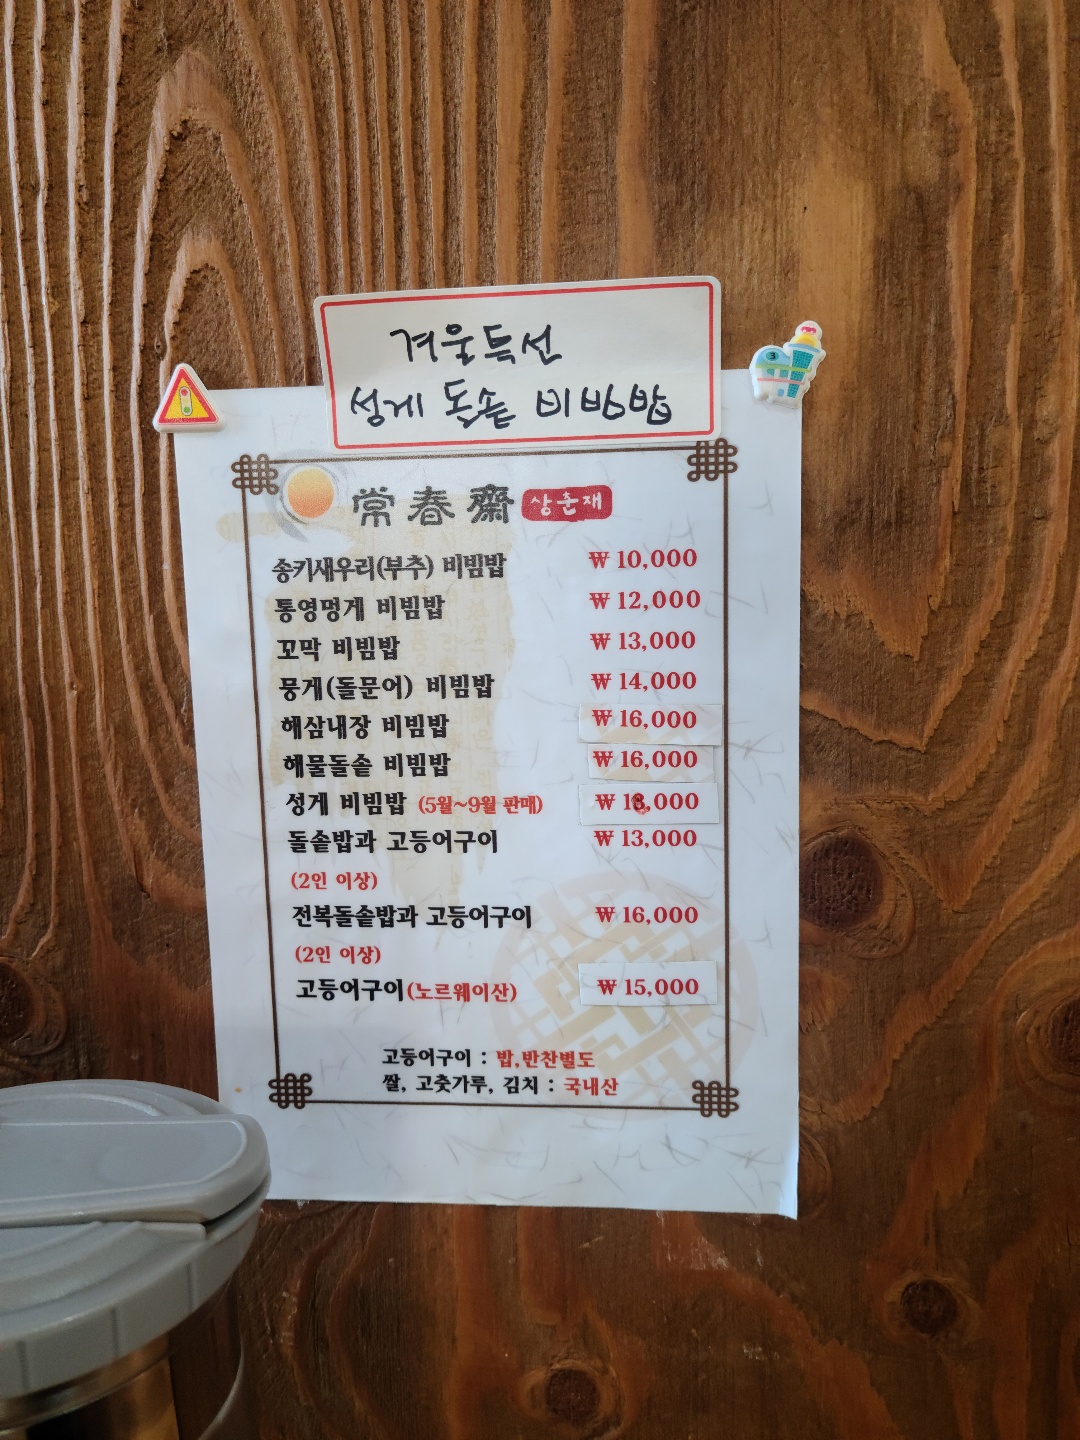 겨울특선
성게 돌솥 비빔밥
常春齋 상춘재
송키새우리(부추) 비빔밥 ₩ 10,000
통영멍게 비빔밥 ₩ 12,000
꼬막 비빔밥 ₩ 13,000
뭉게(돌문어) 비빔밥 ₩ 14,000
해삼내장 비빔밥 ₩ 16,000
해물돌솥 비빔밥 ₩ 16,000
성게 비빔밥 (5월~9월 판매) ₩ 18,000
돌솥밥과 고등어구이 ₩ 13,000
(2인 이상)
전복돌솥밥과 고등어구이 ₩ 16,000
(2인 이상)
고등어구이(노르웨이산) ₩ 15,000
고등어구이 : 밥,반찬별도
쌀, 고춧가루, 김치 : 국내산